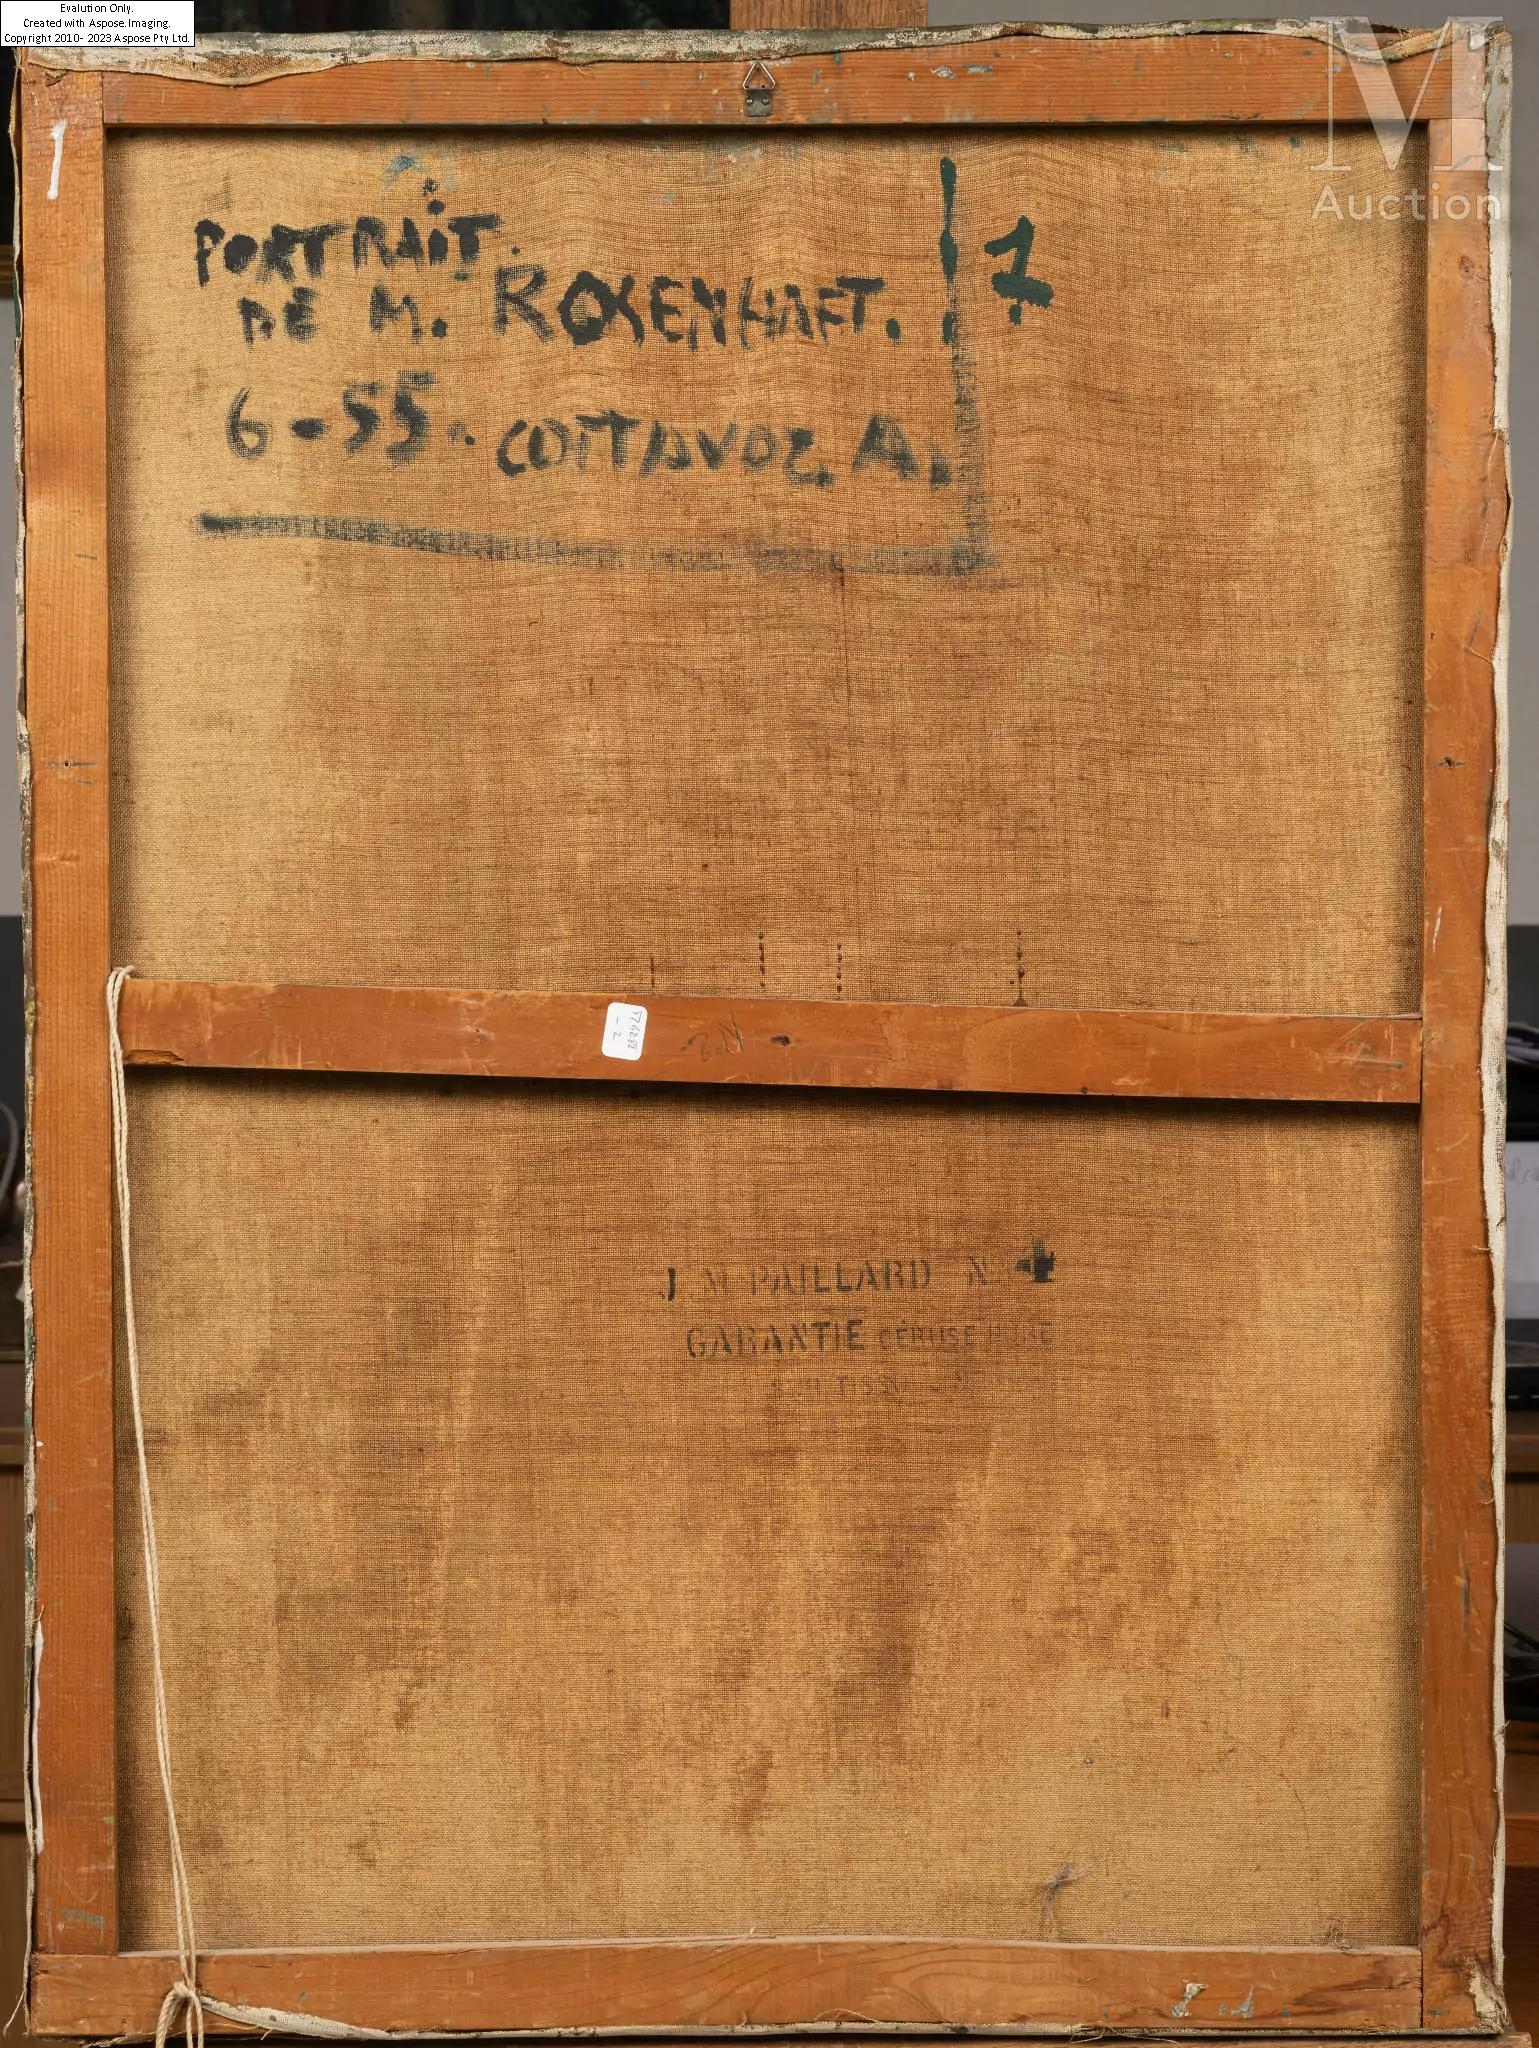 Evalution Only.
Created with Aspose.Imaging.
Copyright 2010- 2023 Aspose Pty Ltd.
M
Auction
PORTRAIT.
DE M. ROSENHAFT. 7
6-55. COTTAVOZ A.
J M PAILLARD N 4
GARANTIE CÉRUSE